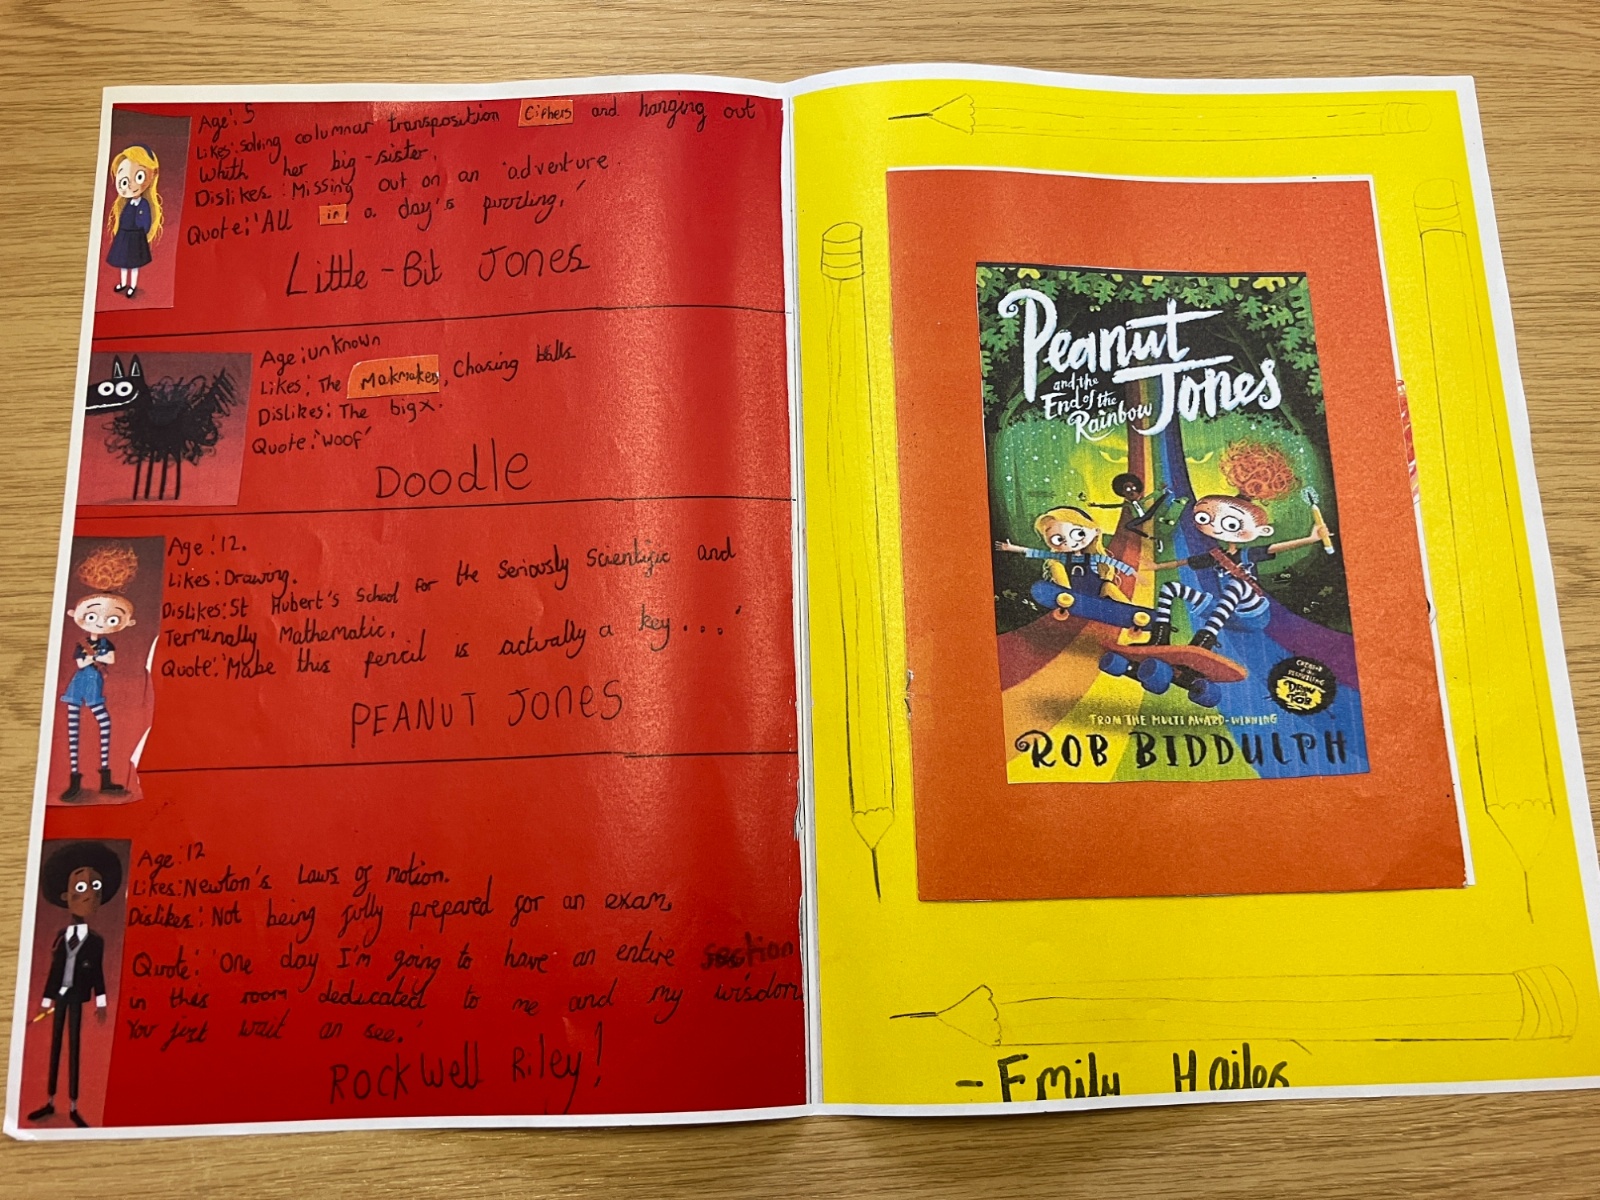 Age: 5
Likes: Solving columnar transposition Ciphers and hanging out
Whith her big-sister.
Dislikes: Missing out on an adventure.
Quote: 'All in a day's puzzling.'
Little-Bit Jones
Age: unknown
Likes: The Makmakers, Chasing balls
Dislikes: The big x.
Quote: 'Woof'
Doodle
Age: 12.
Likes: Drawing.
Dislikes: St Hubert's School for the Seriously Scientific and
Terminally Mathematic.
Quote: 'Mabe this pencil is actually a key...'
PEANUT JONES
Age: 12
Likes: Newton's Laws of motion.
Dislikes: Not being fully prepared for an exam.
Quote: 'One day I'm going to have an entire section
in this room dedicated to me and my wisdom.
You just wait an see.'
ROCKWELL Riley!
Peanut
and the
Jones
End of the
Rainbow
CREATOR
of the
BESTSELLING
DRAW
with
ROB
FROM THE MULTI AWARD-WINNING
ROB BIDDULPH
- Emily Hailes